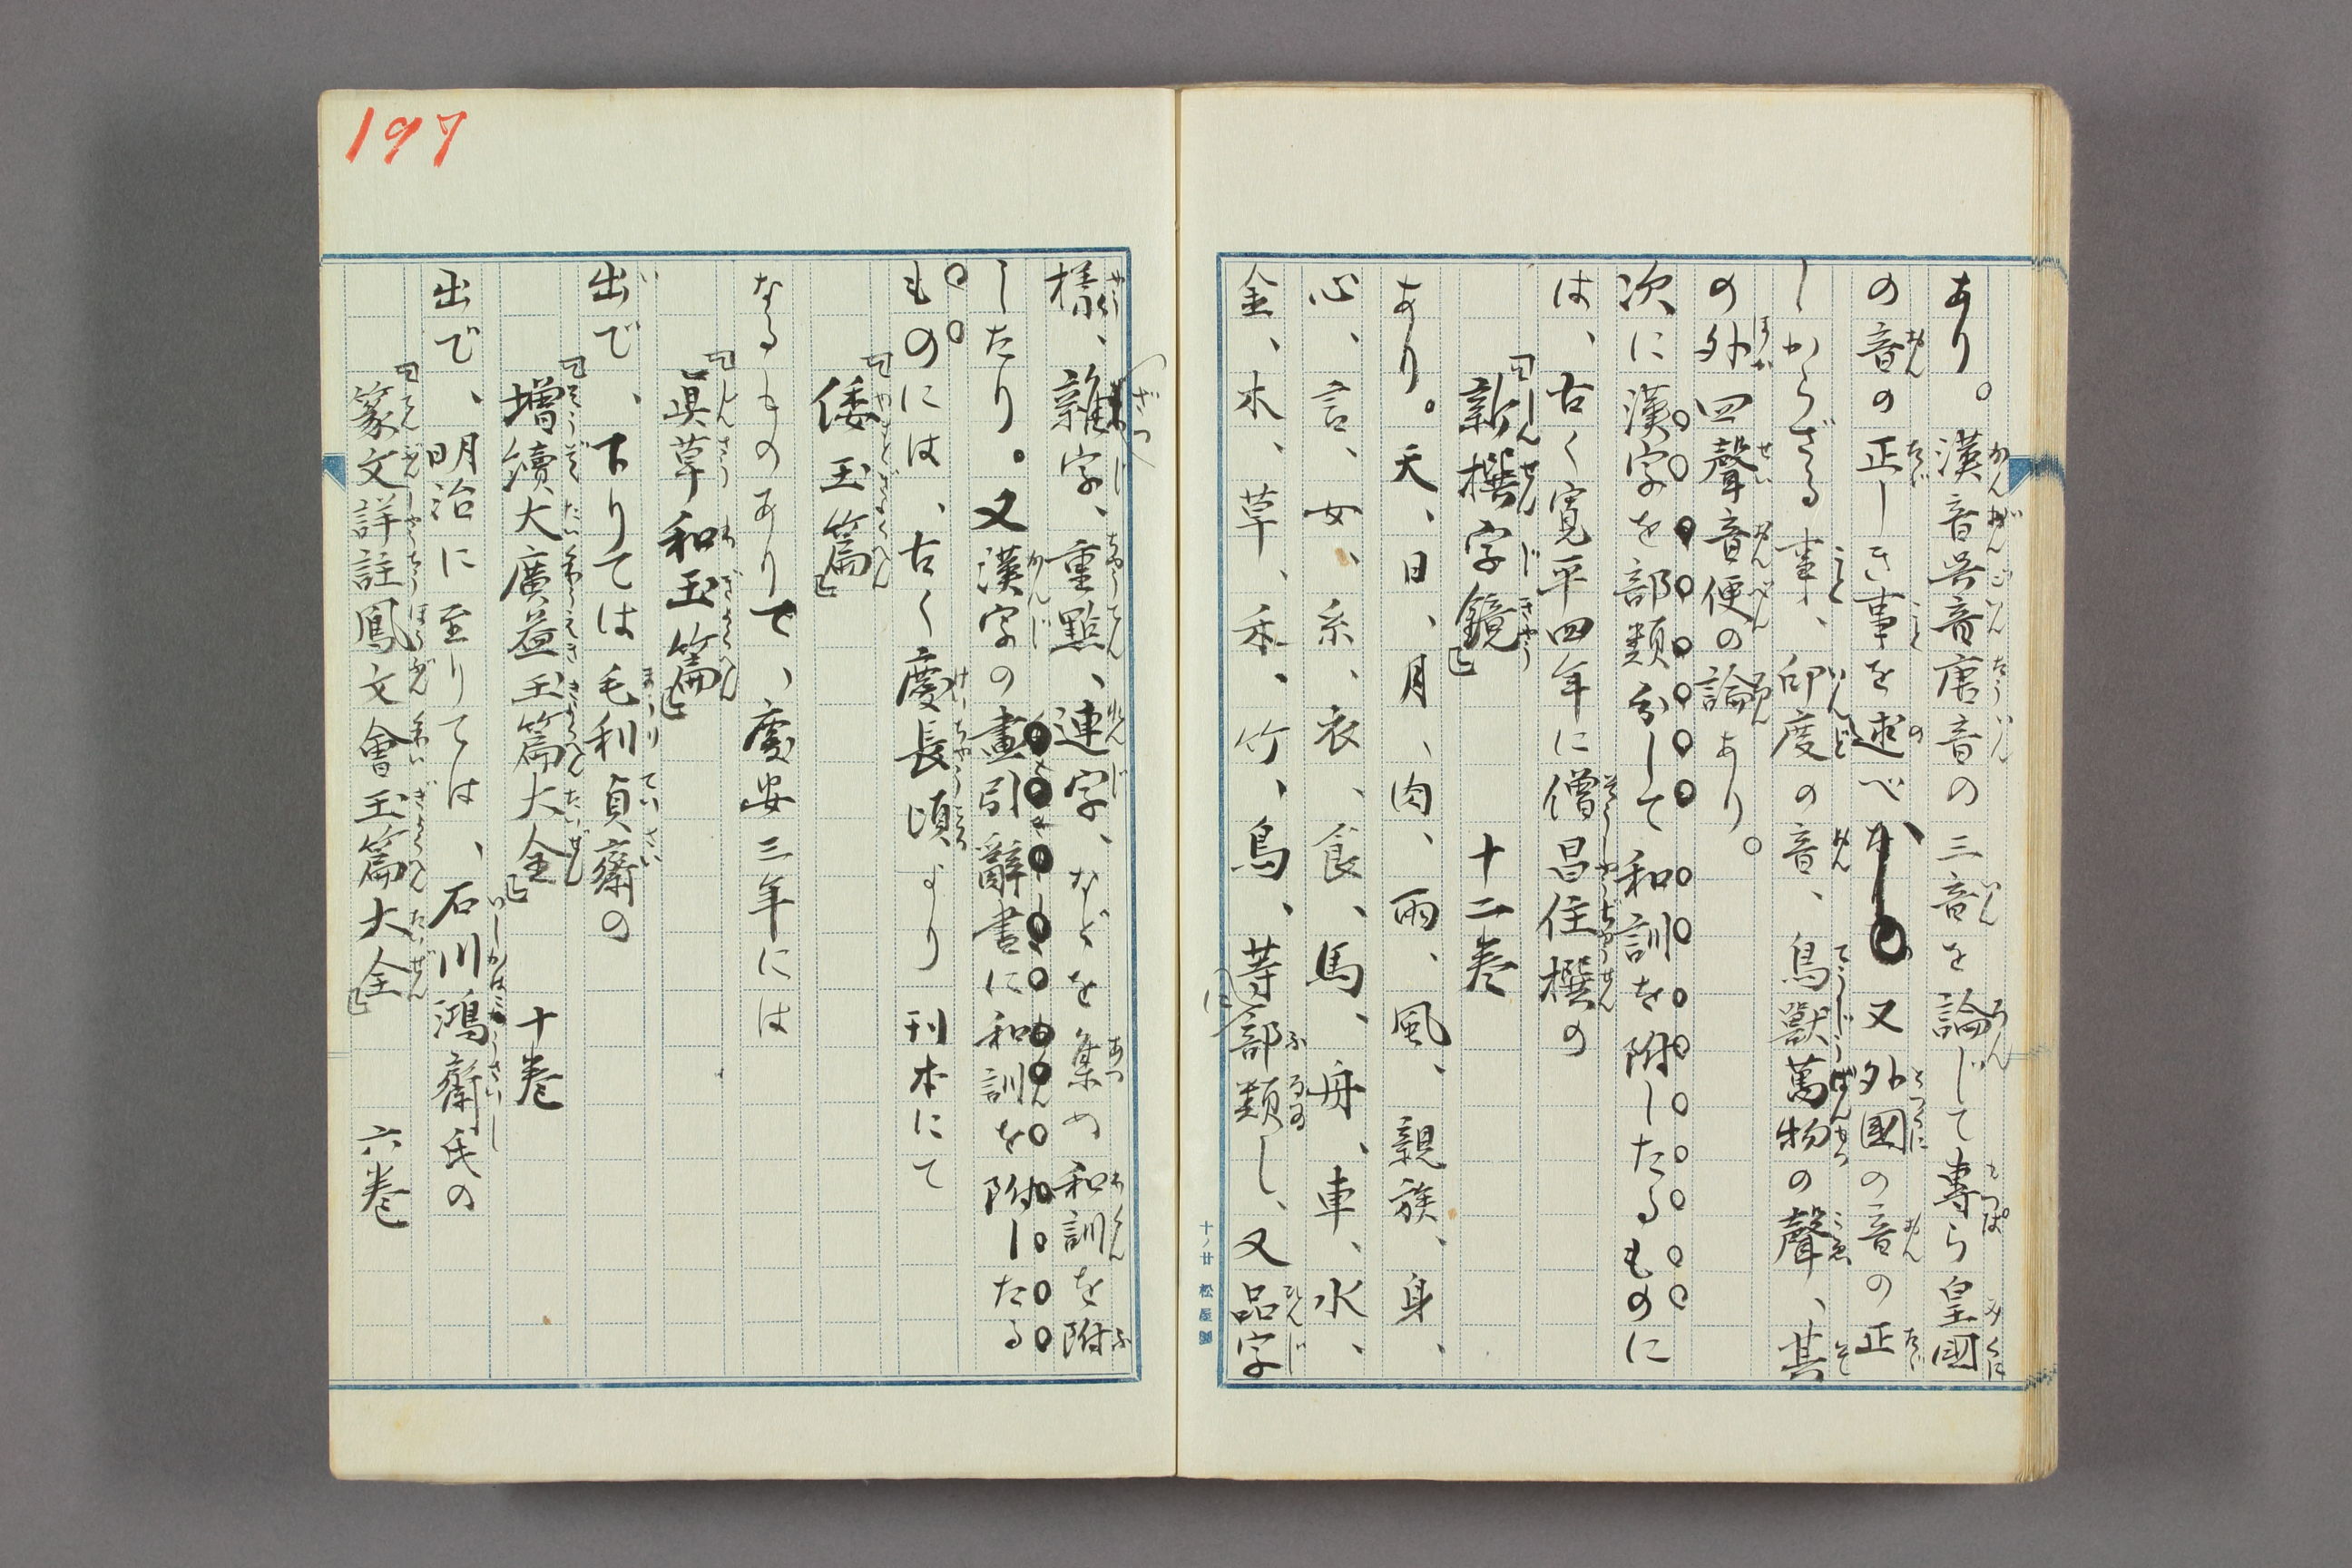 あり。漢音呉音唐音の三音を論じて專ら皇國
の音の正しき事を述べ又外國の音の正
しからざる事、印度の音、鳥獸萬物の聲、其
の外四聲音便の論あり。
次に漢字を部類分して和訓を附したるものに
は、古く寛平四年に僧昌住撰の
「新撰字鏡」 十二巻
あり。天、日、月、肉、雨、風、親族、身、
心、言、女、糸、衣、食、馬、舟、車、水、
金、木、草、禾、竹、鳥、等に部類し、又品字
樣、雜字、重點、連字、などを集め和訓を附
したり。又漢字の畫引辭書に和訓を附したる
ものには、古く慶長頃より刊本にて
「倭玉篇」
なるものありて、慶安三年には
「眞草和玉篇」
出で、下りては毛利貞齋の
「増續大廣益玉篇大全」 十巻
出で、明治に至りては、石川鴻齋氏の
「篆文詳註鳳文會玉篇大全」 六巻
197
十ノ廿 松屋製